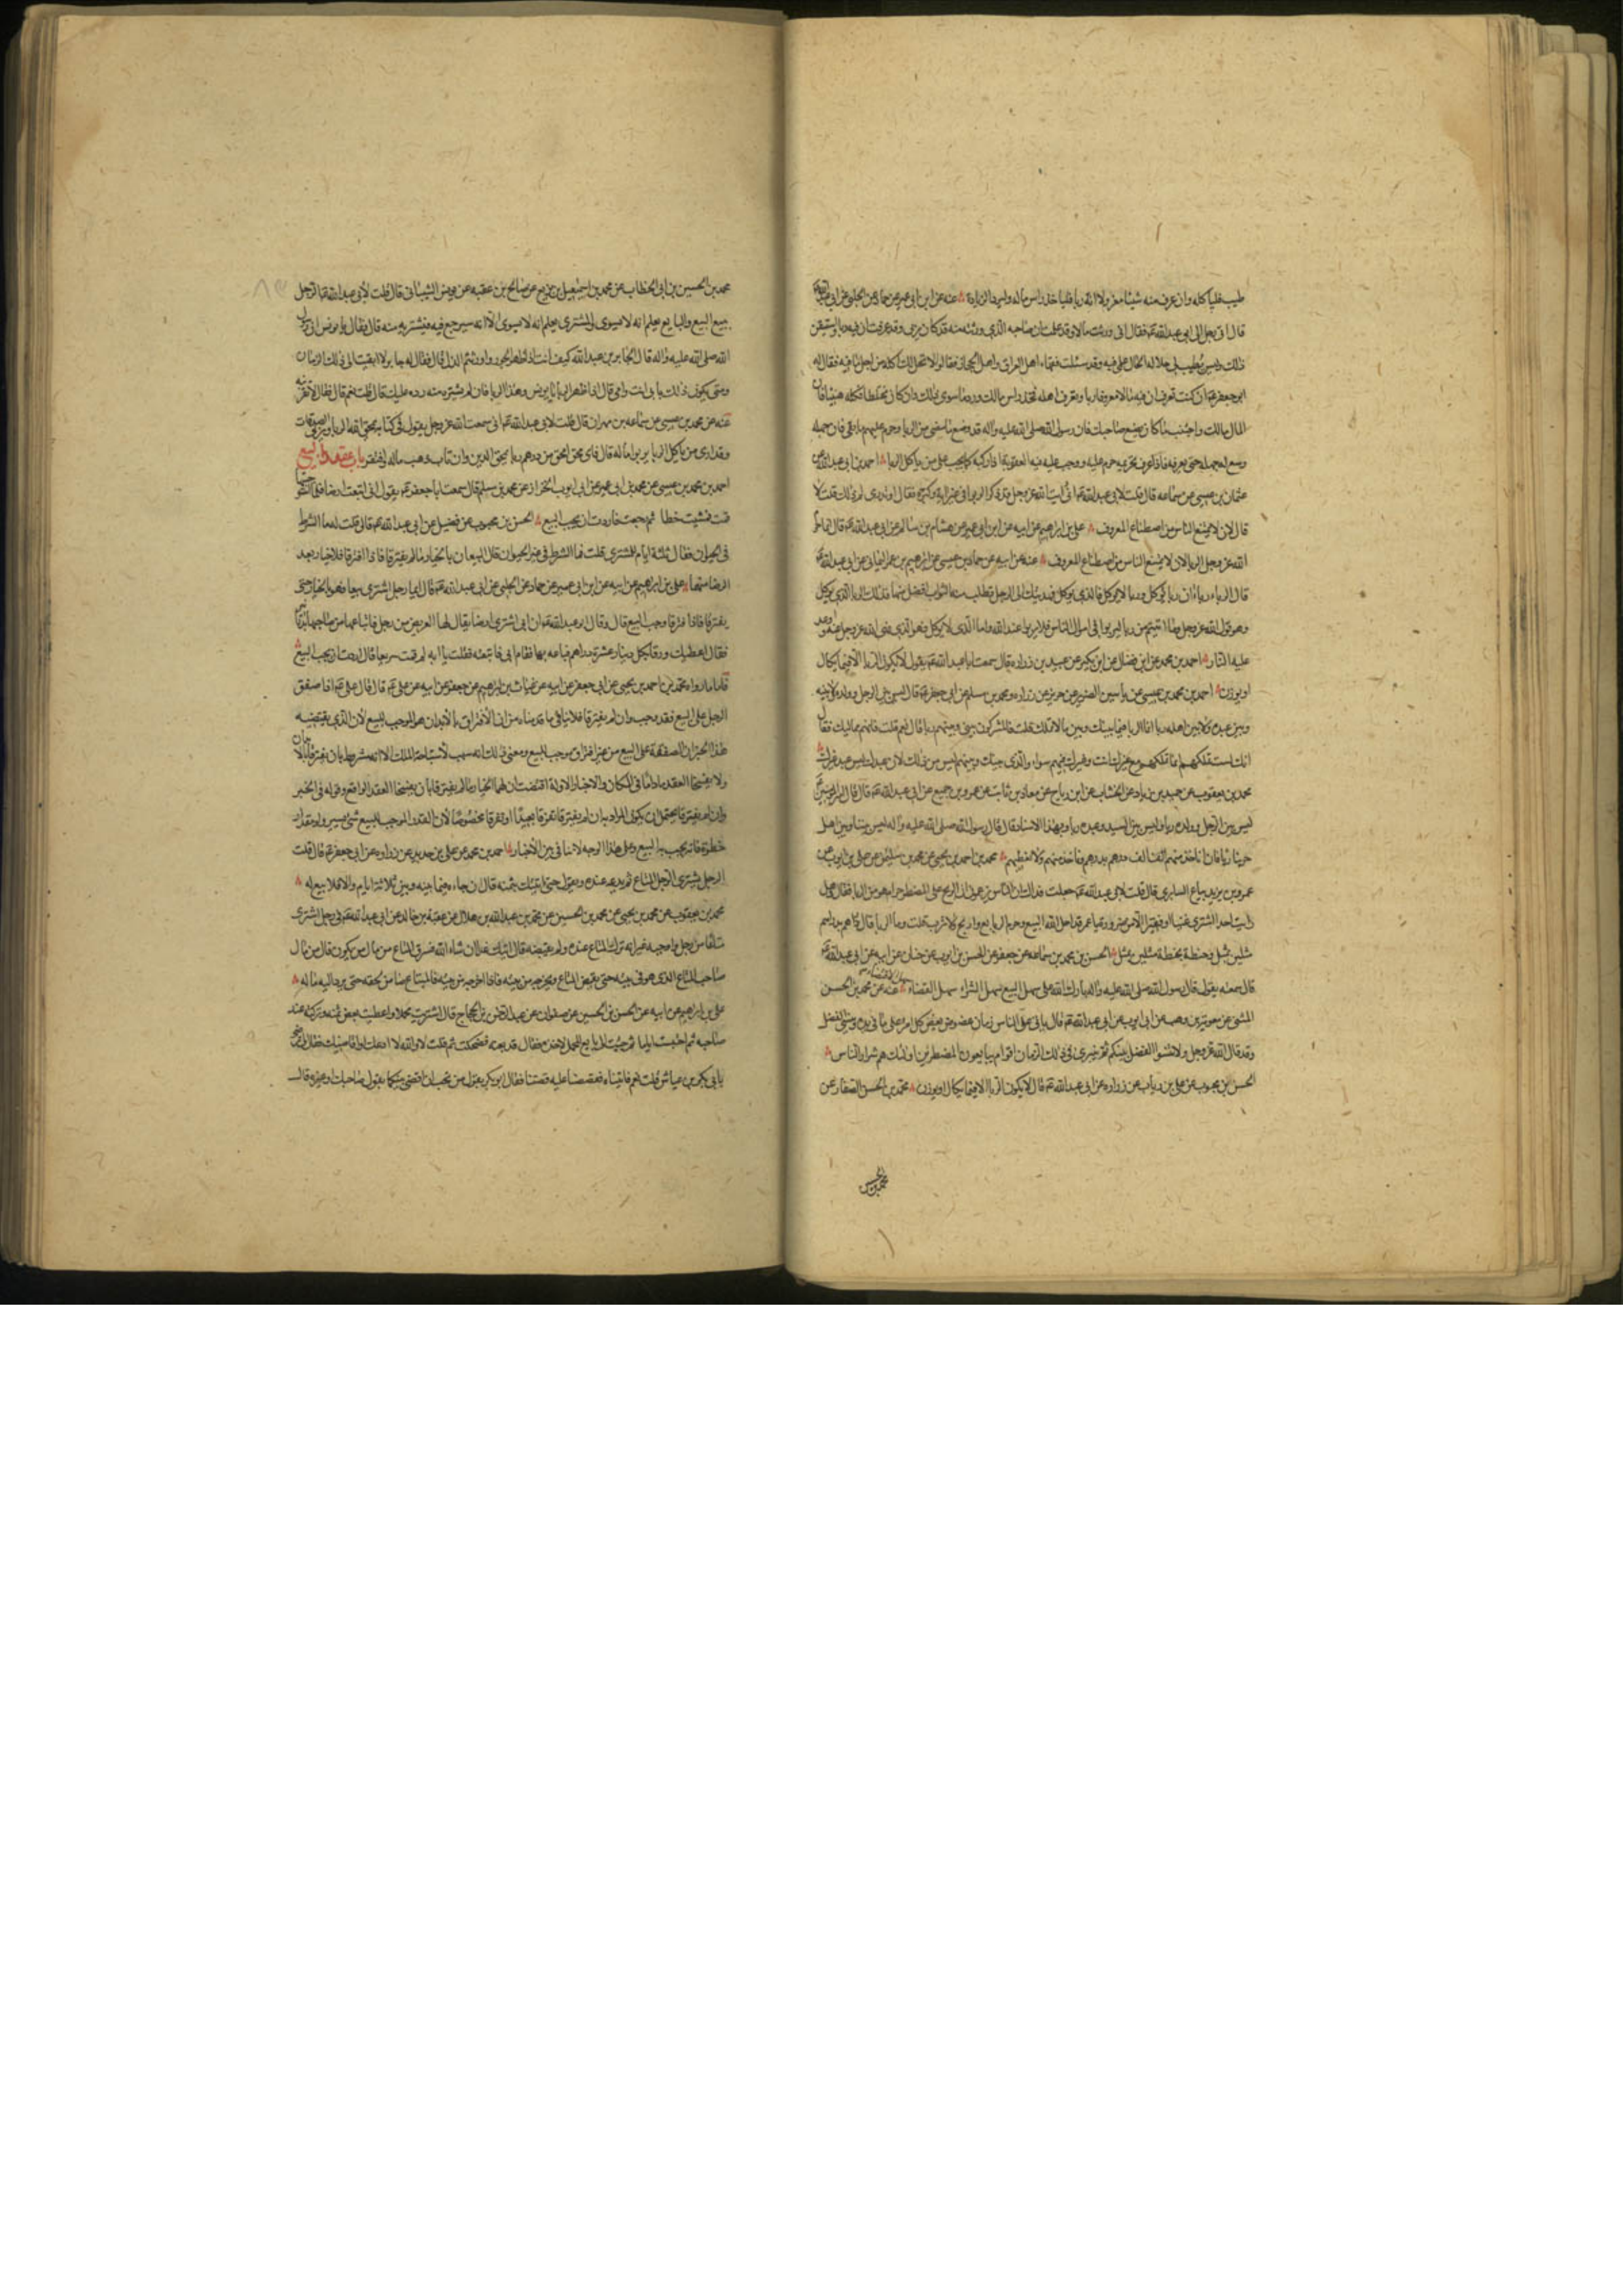 طيب فلياكله وان عرف منه شيئا معزولا انه ربا فلياخذ راس ماله وليرد الزيادة عنه عن ابن ابي عمير عن حماد عن الحلبي عن ابي عبد الله
قال اتى رجل الى ابي عبد الله ع فقال اني ورثت مالا وقد علمت ان صاحبه الذي ورثته منه قد كان يربي وقد عرفت ان فيه ربا واستيقن
ذلك وليس يطيب لي حلاله لحال علمي فيه وقد سئلت فقهاء اهل العراق واهل الحجاز فقالوا لا يحل لك اكله من اجل ما فيه فقال له
ابو جعفر ع ان كنت تعرف ان فيه مالا معروفا ربا وتعرف اهله فخذ راس مالك ورد ما سوى ذلك وان كان مختلطا فكله هنيئا فان
المال مالك واجتنب ما كان يصنع صاحبك فان رسول الله صلى الله عليه واله قد وضع ما مضى من الربا وحرم عليهم ما بقي فمن جهله
وسع له جهله حتى يعرفه فاذا عرف تحريمه حرم عليه ووجب عليه فيه العقوبة اذا ركبه كما يجب على من ياكل الربا احمد بن ابي عبد الله عن
عثمان بن عيسى عن سماعه قال قلت لابي عبد الله ع اني رايت الله عز وجل قد ذكر الربا في غير اية وكرره فقال او تدري لم ذلك قلت لا
قال لان لا يمتنع الناس من اصطناع المعروف علي بن ابراهيم عن ابيه عن ابن ابي عمير عن هشام بن سالم عن ابي عبد الله ع قال انما حرم
الله عز وجل الربا لان لا يمتنع الناس من اصطناع المعروف عنه عن ابيه عن حماد بن عيسى عن ابراهيم بن عمر اليماني عن ابي عبد الله ع
قال الرباء رباءان ربا يؤكل وربا لا يؤكل فاما الذي يؤكل فهديتك الى الرجل تطلب منه الثواب افضل منها فذلك الربا الذي يؤكل
وهو قول الله عز وجل وما اتيتم من ربا ليربوا في اموال الناس فلا يربوا عند الله واما الذي لا يؤكل فهو الذي نهى الله عز وجل عنه واوعد
عليه النار احمد بن محمد عن ابن فضال عن ابن بكير عن عبيد بن زراره قال سمعت ابا عبد الله ع يقول لا يكون الربا الا فيما يكال
او يوزن احمد بن محمد بن عيسى عن ياسين الضرير عن حريز عن زراره ومحمد بن مسلم عن ابي جعفر ع قال ليس بين الرجل وولده ولا بينه
وبين عبده ولا بين اهله ربا انما الربا فيما بينك وبين ما لا تملك قلت فالمشركون بيني وبينهم ربا قال نعم قلت فانهم مماليك فقال
انك لست تملكهم انما تملكهم مع غيرك انت وغيرك فيهم سواء والذي بينك وبينهم ليس من ذلك لان عبدك ليس عبد غيرك
محمد بن يعقوب عن حميد بن زياد عن الخشاب عن ابن رباح عن معاد بن ثابت عن عمرو بن جميع عن ابي عبد الله ع قال قال امير المؤمنين ع
ليس بين الرجل وولده ربا وليس بين السيد وعبده ربا وبهذا الاسناد قال قال رسول الله صلى الله عليه واله ليس بيننا وبين اهل
حربنا ربا فانا ناخذ منهم الف الف درهم بدرهم وناخذ منهم ولا نعطيهم محمد بن احمد بن يحيى عن محمد بن سليمن عن علي بن ايوب عن
عمر بن يزيد بياع السابري قال قلت لابي عبد الله ع جعلت فداك ان الناس يزعمون ان الربح على المضطر حرام هو من الربا فقال وهل
رايت احدا اشترى غنيا او فقيرا الا من ضرورة يا عمر قد احل الله البيع وحرم الربا بع واربح ولا ترب قلت وما الربا قال دراهم بدراهم
مثلين بمثل وحنطة بحنطة مثلين بمثل الحسن بن محمد بن سماعه عن جعفر عن الحسن بن ايوب عن حنان عن ابيه عن ابي عبد الله ع
قال سمعته يقول قال رسول الله صلى الله عليه واله بارك الله على سهل البيع سهل الشراء سهل القضاء سهل الاقتضاء عنه عن محمد بن الحسن
المثنى عن معويه بن وهب عن ابي ايوب عن ابي عبد الله ع قال ياتي على الناس زمان عضوض يعض كل امرء على ما في يده وينسى الفضل
وقد قال الله عز وجل ولا تنسوا الفضل بينكم ثم ينبري في ذلك الزمان اقوام يبايعون المضطرين اولئك هم شرار الناس
الحسن بن محبوب عن علي بن رياب عن زراره عن ابي عبد الله ع قال لا يكون الربا الا فيما يكال او يوزن محمد بن الحسن الصفار عن
محمد بن الحسين
محمد بن الحسين بن ابي الخطاب عن محمد بن اسمعيل بن بزيع عن صالح بن عقبه عن يونس الشيباني قال قلت لابي عبد الله ع الرجل
يبيع البيع والبايع يعلم انه لا يسوى والمشتري يعلم انه لا يسوى الا انه سيرجع فيه فيشتريه منه قال فقال يا يونس ان رسول
الله صلى الله عليه واله قال لجابر بن عبد الله كيف انت اذا ظهر الجور واورثتم الذل قال فقال له جابر لا ابقيت الى ذلك الزمان
ومتى يكون ذلك بابي انت وامي قال اذا ظهر الربا يا يونس وهذا الربا فان لم يشتره منه رده عليك قال قلت نعم قال فقال لا تقربنه
عنه عن محمد بن عيسى عن سماعه بن مهران قال قلت لابي عبد الله ع اني سمعت الله عز وجل يقول في كتابه يمحق الله الربا ويربي الصدقات
وقد ارى من ياكل الربا يربوا ماله قال فاي محق امحق من درهم ربا يمحق الدين وان تاب ذهب ماله وافتقر باب عقود البيع
احمد بن محمد بن عيسى عن محمد بن ابي عمير عن ابي ايوب الخزاز عن محمد بن مسلم قال سمعت ابا جعفر ع يقول اني ابتعت ارضا فلما استوجبتها
قمت فمشيت خطا ثم رجعت فاردت ان يجب البيع الحسن بن محبوب عن فضيل عن ابي عبد الله ع قال قلت له ما الشرط
في الحيوان فقال ثلثة ايام للمشتري قلت فما الشرط في غير الحيوان قال البيعان بالخيار ما لم يفترقا فاذا افترقا فلا خيار بعد
الرضا منهما علي بن ابراهيم عن ابيه عن ابن ابي عمير عن حماد عن الحلبي عن ابي عبد الله ع قال ايما رجل اشترى بيعا فهو بالخيار حتى
يفترقا فاذا افترقا وجب البيع قال وقال ابو عبد الله ع ان ابي اشترى ارضا يقال لها العريض من رجل فابتاعها من صاحبها بدنانير
فقال اعطيك ورقا بكل دينار عشرة دراهم فباعه بها فقام ابي فاتبعته فقلت يا ابه لم قمت سريعا قال اردت ان يجب البيع
فاما ما رواه محمد بن احمد بن يحيى عن ابي جعفر عن ابيه عن غياث بن ابراهيم عن جعفر عن ابيه عن علي ع قال قال علي ع اذا صفق
الرجل على البيع فقد وجب وان لم يفترقا فلا ينافي ما قدمناه من ان الافتراق بالابدان هو الموجب للبيع لان الذي يقتضيه
هذا الخبر ان الصفقة على البيع من غير افتراق موجب للبيع ومعنى ذلك انه سبب لاستباحة الملك الا انه مشروط بان يفترقا بالابدان
ولا يفسخا العقد ما داما في المكان والاخبار الاولة اقتضت ان لهما الخيار ما لم يفترقا بان يفسخا العقد الواقع وقوله في الخبر
وان لم يفترقا يحتمل ان يكون المراد به ان لم يفترقا تفرقا بعيدا او تفرقا مخصوصا لان القدر الموجب للبيع شئ يسير ولو مقدار
خطوة فانه يجب به البيع وعلى هذا الوجه لا تنافي بين الاخبار احمد بن محمد عن علي بن حديد عن زراره عن ابي جعفر ع قال قلت
الرجل يشتري الرجل المتاع ثم يدعه عنده ويقول حتى اتيك بثمنه قال ان جاء فيما بينه وبين ثلاثة ايام والا فلا بيع له
محمد بن يعقوب عن محمد بن يحيى عن محمد بن الحسين عن محمد بن عبد الله بن هلال عن عقبة بن خالد عن ابي عبد الله ع في رجل اشترى
متاعا من رجل واوجبه غير انه ترك المتاع عنده ولم يقبضه قال اتيك غدا ان شاء الله فسرق المتاع من مال من يكون قال من مال
صاحب المتاع الذي هو في بيته حتى يقبض المتاع ويخرجه من بيته فاذا اخرجه من بيته فالمبتاع ضامن لحقه حتى يرد اليه ماله
علي بن ابراهيم عن ابيه عن الحسن بن الحسين عن صفوان عن عبد الرحمن بن الحجاج قال اشتريت محملا واعطيت بعض ثمنه وتركته عند
صاحبه ثم احتبست اياما ثم جئت الى بايع المحمل لاخذه فقال قد بعته فضحكت ثم قلت لا والله لا ادعك او اقاضيك فقال لي ترضى
بابي بكر بن عياش قلت نعم فاتيناه فقصصنا عليه قصتنا فقال ابو بكر بقول من تحب ان اقضي بينكما بقول صاحبك او غيره قال